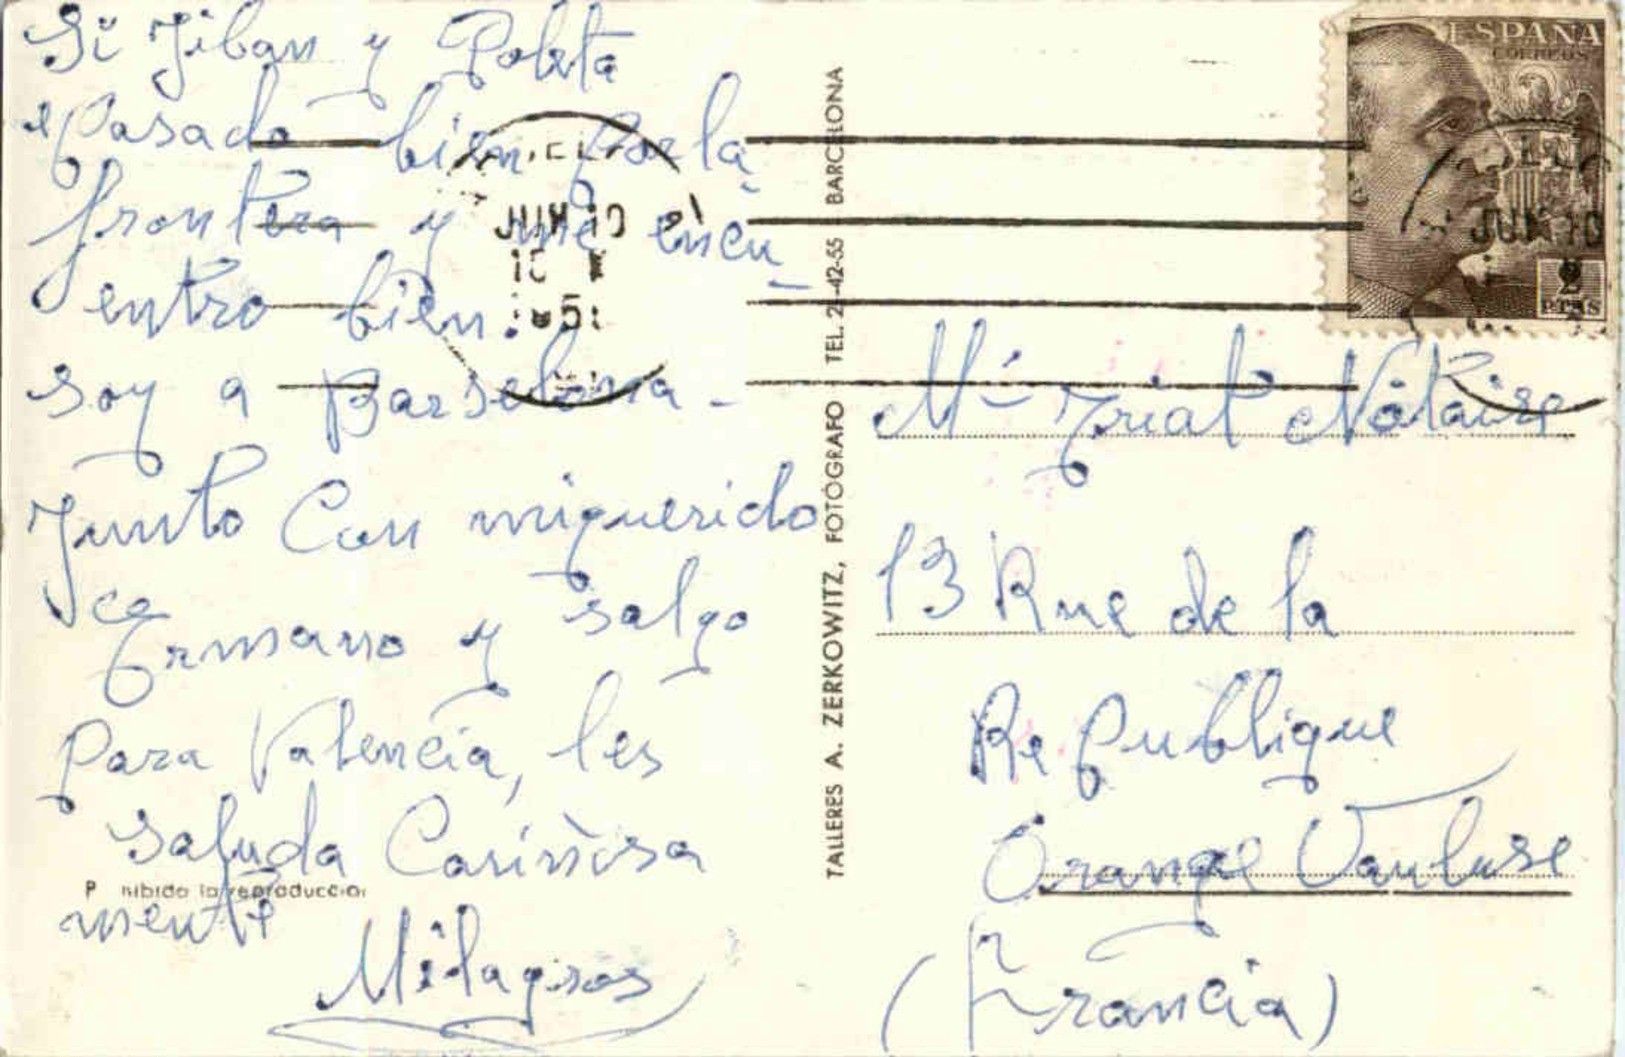 Si Jiban y Poleta
e Pasado bien Por la
frontera y me encu
entro bien.
soy a Barselona -
Junto Con miquerido
ermano y salgo
Para Valencia, les
saluda Cariñosa
mente
Milagros
P hibido la reproduccion
TALLERES A. ZERKOWITZ, FOTÓGRAFO TEL. 2 -42-55 BARCELONA
ESPAÑA
CORREOS
2
PTAS
JUN 10
JUN 10
Mr Triat Nôtaire
13 Rue de la
Republique
Orange Vaucluse
(Francia)